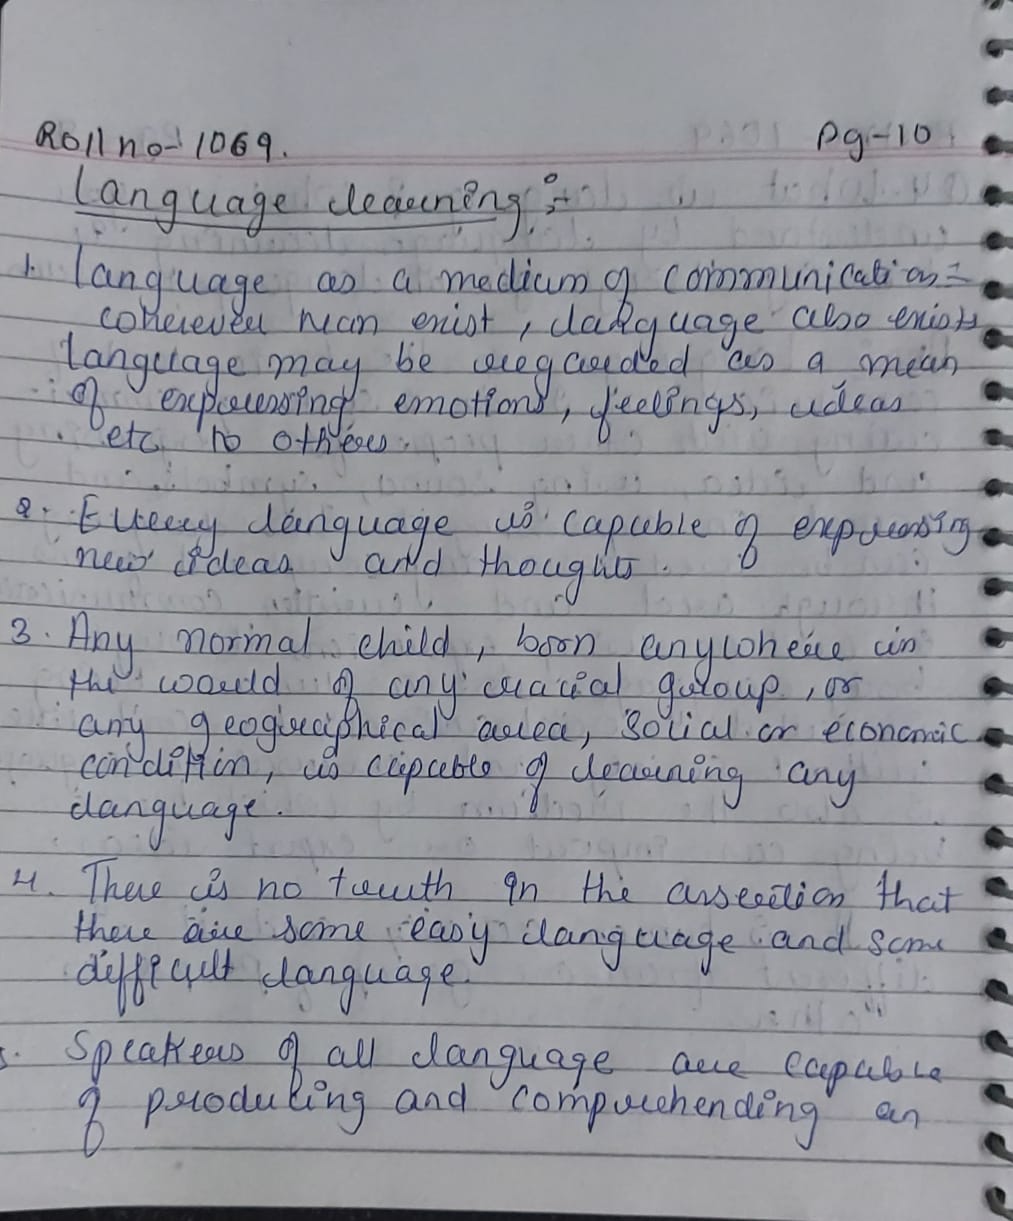 Roll no- 1069. Pg-10
Language learning :-
1. Language as a medium of communication =
wherever man exist, language also exists
language may be regarded as a mean
of expressing emotions, feelings, ideas
etc. to others.
2. Every language is capable of expressing
new ideas and thoughts.
3. Any normal child, born anywhere in
the world of any racial group, or
any geographical area, social or economic
condition, is capable of learning any
language.
4. There is no truth in the assertion that
there are some easy language and some
difficult language.
5. Speakers of all language are capable
of producing and comprehending an